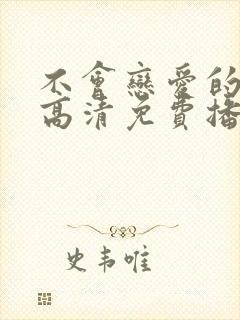 不會戀愛的
高清免費播
史韦唯